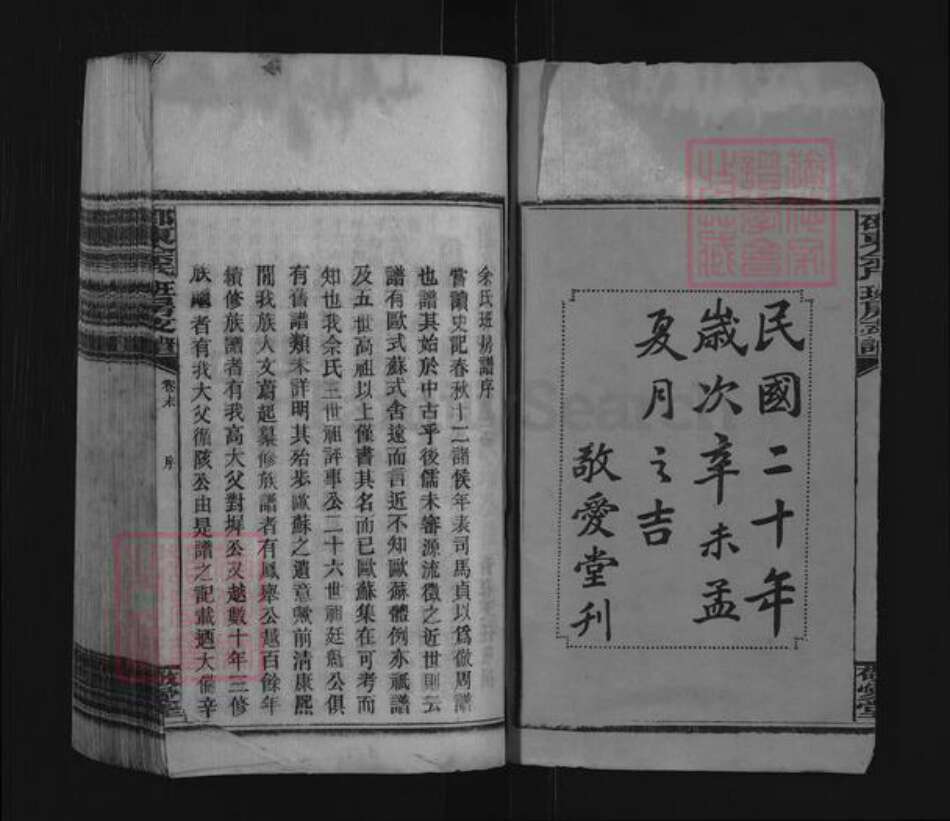 民國二十年
歲次辛未孟
夏月之吉
敬愛堂刊
余氏班房譜序
嘗讀史記春秋十二諸侯年表司馬貞以爲倣周譜
也譜其始於中古乎後儒未審源流徵之近世則云
譜有歐式蘇式舍遠而言近不知歐蘇體例亦祇譜
及五世高祖以上僅書其名而已歐蘇集在可考而
知也我余氏三世祖評事公二十六世祖廷公俱
有舊譜類未詳明其殆步歐蘇之遺意歟前淸康熙
間我族人文蔚起纂修族譜者有鳳公越百餘年
續修族譜者有我高大父對墀公又越數十年三修
族譜者有我大父循陔公由是譜之記載迺大備辛
卷末
序